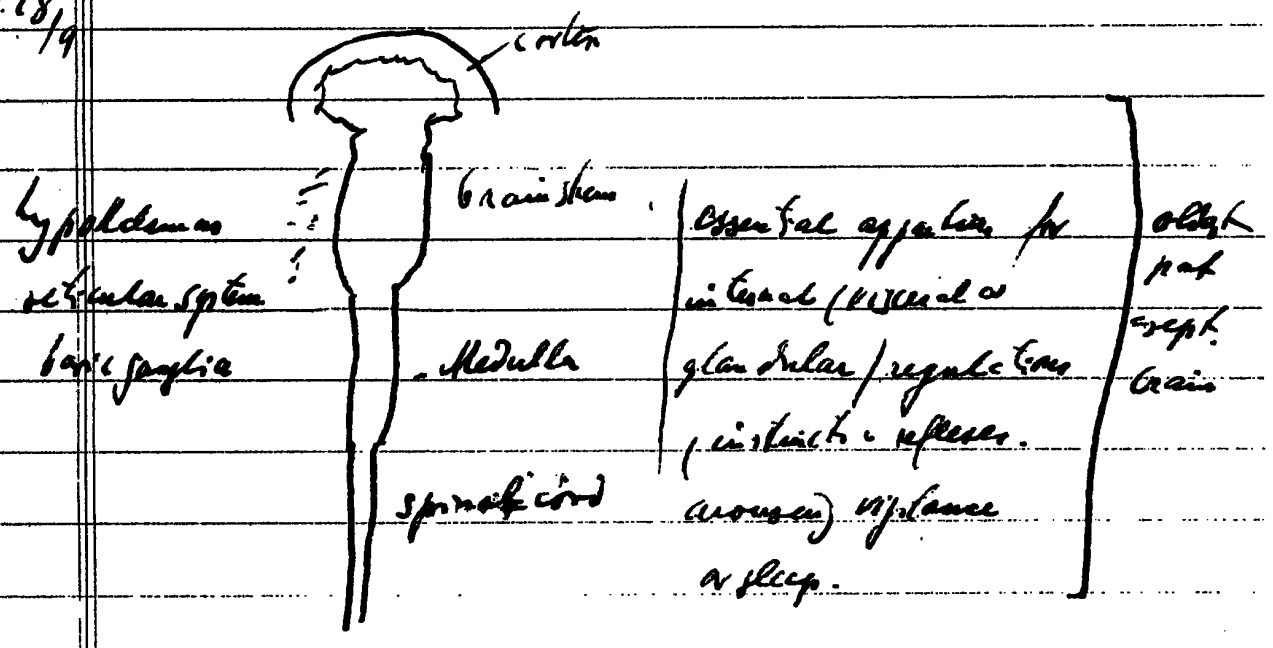 18/9
cortex
brainstem
hypothalamus
reticular system
basic ganglia
Medulla
spinal cord
essential apparatus for
internal (visceral or
glandular) regulations
, instincts & reflexes.
arousal, vigilance
or sleep.
oldest
part
rept.
brain